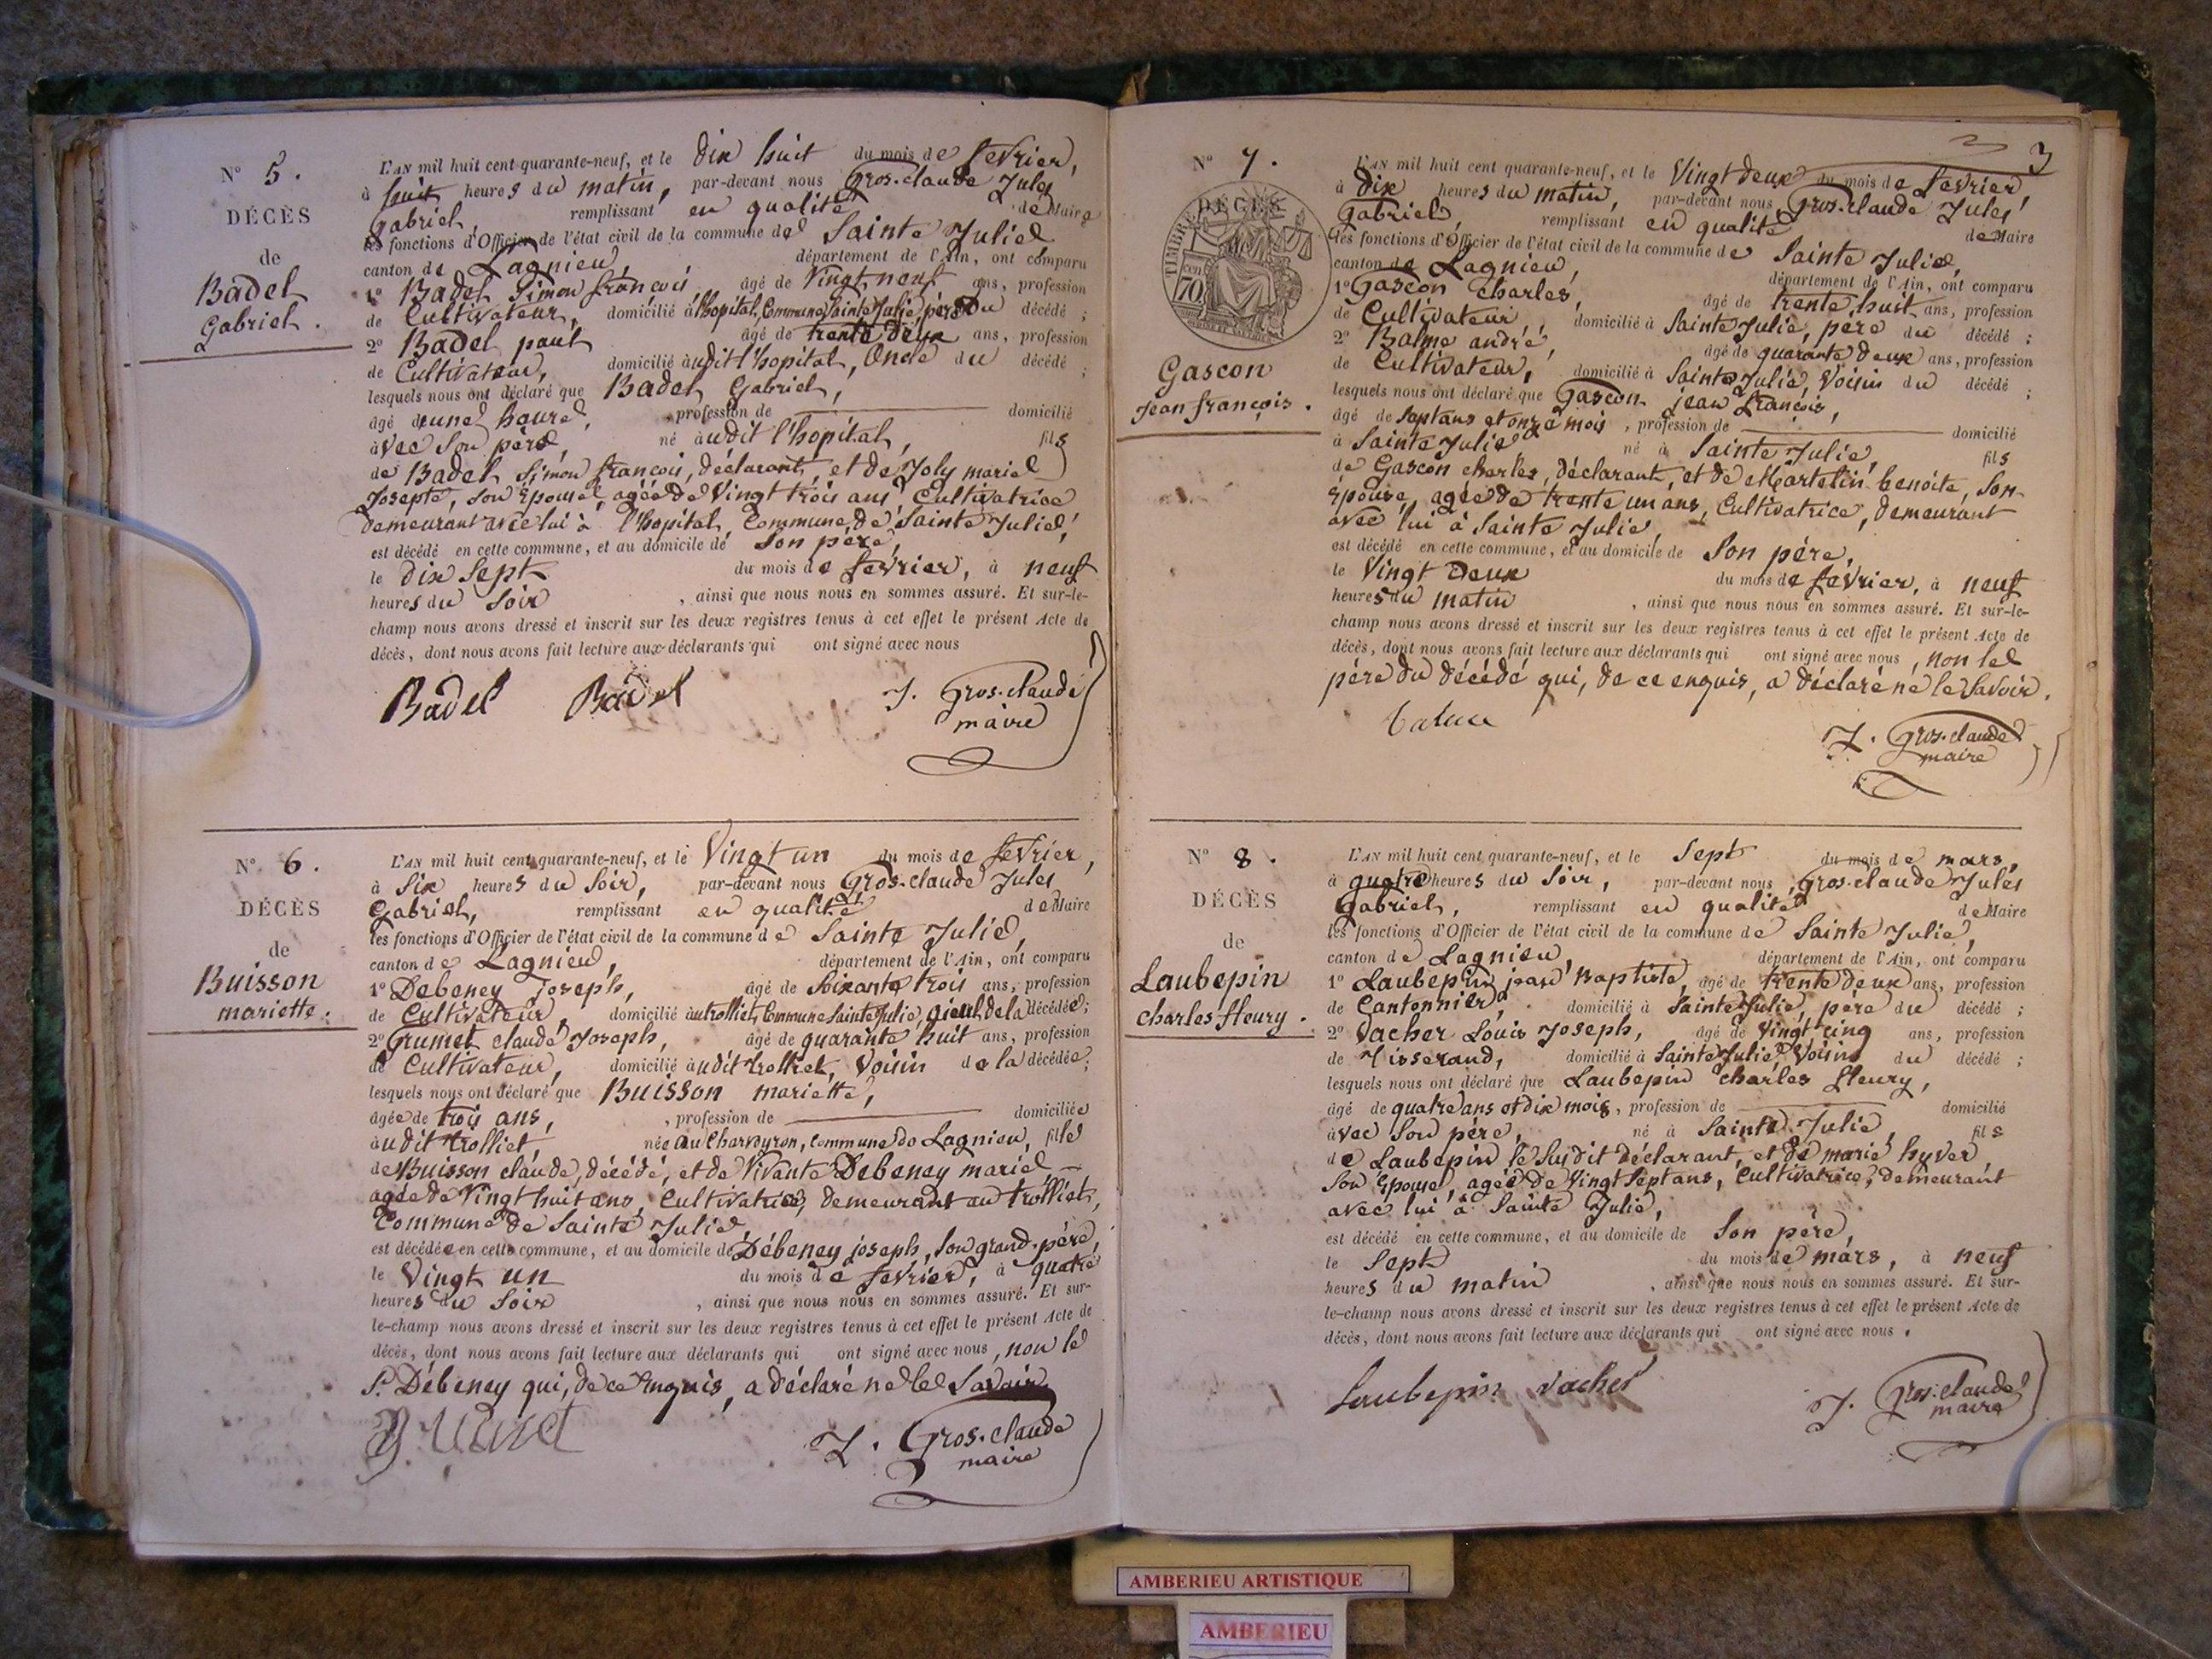 N° 5.
DÉCÈS
de
Badel
Gabriel.
L'AN mil huit cent quarante-neuf, et le dix huit du mois de fevrier,
à huit heures du matin, par-devant nous Gros-claude Jules
Gabriel, remplissant en qualité de Maire
les fonctions d'Officier de l'état civil de la commune de Sainte Julie
canton de Lagnieu, département de l'Ain, ont comparu
1° Badel Simon françois âgé de vingt neuf ans, profession
de Cultivateur, domicilié à l'hopital, Commune Sainte Julie, père du décédé ;
2° Badel paul âgé de trente deux ans, profession
de Cultivateur, domicilié audit l'hopital, Oncle du décédé ;
lesquels nous ont déclaré que Badel Gabriel,
âgé d'une heure, profession de domicilié
avec son père, né audit l'hopital, fils
de Badel Simon françois, déclarant, et de Joly marie
Josepte, son épouse, agée de vingt trois ans Cultivatrice
demeurant avec lui à l'hopital, Commune de Sainte Julie,
est décédé en cette commune, et au domicile de son père,
le dix sept du mois de fevrier, à neuf
heures du soir, ainsi que nous nous en sommes assuré. Et sur-le-
champ nous avons dressé et inscrit sur les deux registres tenus à cet effet le présent Acte de
décès, dont nous avons fait lecture aux déclarants qui ont signé avec nous
Badel Badel J. Gros-claude
maire
N° 6.
DÉCÈS
de
Buisson
mariette.
L'AN mil huit cent quarante-neuf, et le Vingt un du mois de fevrier,
à six heures du soir, par-devant nous Gros-claude Jules
Gabriel, remplissant en qualité de Maire
les fonctions d'Officier de l'état civil de la commune de Sainte Julie,
canton de Lagnieu, département de l'Ain, ont comparu
1° Debeney joseph, âgé de soixante trois ans, profession
de Cultivateur, domicilié au trolliet, Commune Sainte Julie, aïeul de la décédée;
2° Grumet claude Joseph, âgé de quarante huit ans, profession
de Cultivateur, domicilié audit trolliet, Voisin de la décédée;
lesquels nous ont déclaré que Buisson mariette,
âgée de trois ans, profession de domiciliée
audit trolliet, née au Charveyron, Commune de Lagnieu, fille
de Buisson claude, décédé, et de Vivante Debeney marie
agée de Vingt huit ans, Cultivatrice, demeurant au trolliet,
Commune de Sainte Julie,
est décédée en cette commune, et au domicile de Débeney joseph, son grand-père,
le Vingt un du mois de fevrier, à quatre
heures du soir, ainsi que nous nous en sommes assuré. Et sur-
le-champ nous avons dressé et inscrit sur les deux registres tenus à cet effet le présent Acte de
décès, dont nous avons fait lecture aux déclarants qui ont signé avec nous, non le
S. Débeney qui, de ce enquis, a déclaré ne le Savoir.
Grumet J. Gros-claude
maire
3
N° 7.
DÉCÈS
TIMBRE
cen
70
Gascon
Jean françois.
L'AN mil huit cent quarante-neuf, et le Vingt deux du mois de fevrier
à dix heures du matin, par-devant nous Gros-claude Jules
Gabriel, remplissant en qualité de Maire
les fonctions d'Officier de l'état civil de la commune de Sainte Julie,
canton de Lagnieu, département de l'Ain, ont comparu
1° Gascon Charles, âgé de trente huit ans, profession
de Cultivateur domicilié à Sainte Julie, père du décédé ;
2° Balme andré, âgé de quarante deux ans, profession
de Cultivateur, domicilié à Sainte Julie, Voisin du décédé ;
lesquels nous ont déclaré que Gascon jean françois,
âgé de sept ans et onze mois, profession de domicilié
à Sainte Julie né à Sainte Julie, fils
de Gascon charles, déclarant, et de Martelin benoite, son
épouse, agée de trente un ans, Cultivatrice, demeurant
avec lui à Sainte Julie,
est décédé en cette commune, et au domicile de son père,
le Vingt Deux du mois de fevrier, à neuf
heures du matin, ainsi que nous nous en sommes assuré. Et sur-le-
champ nous avons dressé et inscrit sur les deux registres tenus à cet effet le présent Acte de
décès, dont nous avons fait lecture aux déclarants qui ont signé avec nous, non le
père du décédé qui, de ce enquis, a déclaré ne le Savoir.
J. Gros-claude
maire
N° 8.
DÉCÈS
de
Laubepin
charles fleury.
L'AN mil huit cent quarante-neuf, et le Sept du mois de mars,
à quatre heures du soir, par-devant nous Gros-claude Jules
Gabriel, remplissant en qualité de Maire
les fonctions d'Officier de l'état civil de la commune de Sainte Julie,
canton de Lagnieu, département de l'Ain, ont comparu
1° Laubepin jean Baptiste, âgé de trente deux ans, profession
de Cantonnier, domicilié à Sainte Julie, père du décédé ;
2° Vacher Louis Joseph, âgé de Vingt cinq ans, profession
de Tisserand, domicilié à Sainte Julie, Voisin du décédé ;
lesquels nous ont déclaré que Laubepin charles fleury,
âgé de quatre ans et dix mois, profession de domicilié
avec son père, né à Sainte Julie, fils
de Laubepin le susdit déclarant, et de marie hyver
son épouse, agée de Vingt sept ans, Cultivatrice, demeurant
avec lui à Sainte Julie,
est décédé en cette commune, et au domicile de son père,
le Sept du mois de mars, à neuf
heures du matin, ainsi que nous nous en sommes assuré. Et sur-
le-champ nous avons dressé et inscrit sur les deux registres tenus à cet effet le présent Acte de
décès, dont nous avons fait lecture aux déclarants qui ont signé avec nous.
Laubepin vacher J. Gros-claude
maire
AMBERIEU ARTISTIQUE
AMBERIEU